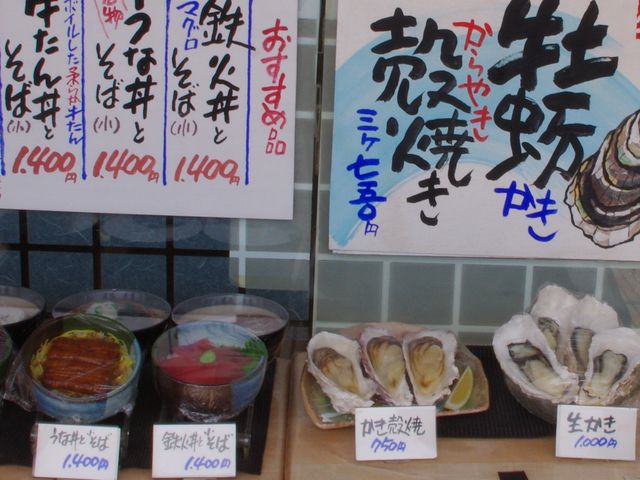 おすすめ品
鉄火丼と
マグロ
そば(小)
1.400円
うな丼と
そば(小)
1.400円
牛たん丼と
ボイルした柔らか牛たん
そば(小)
1.400円
牡蛎
かき
殻焼き
からやき
三ヶ七五〇円
うな丼とそば
1.400円
鉄火丼とそば
1.400円
かき殻焼
750円
生かき
1.000円